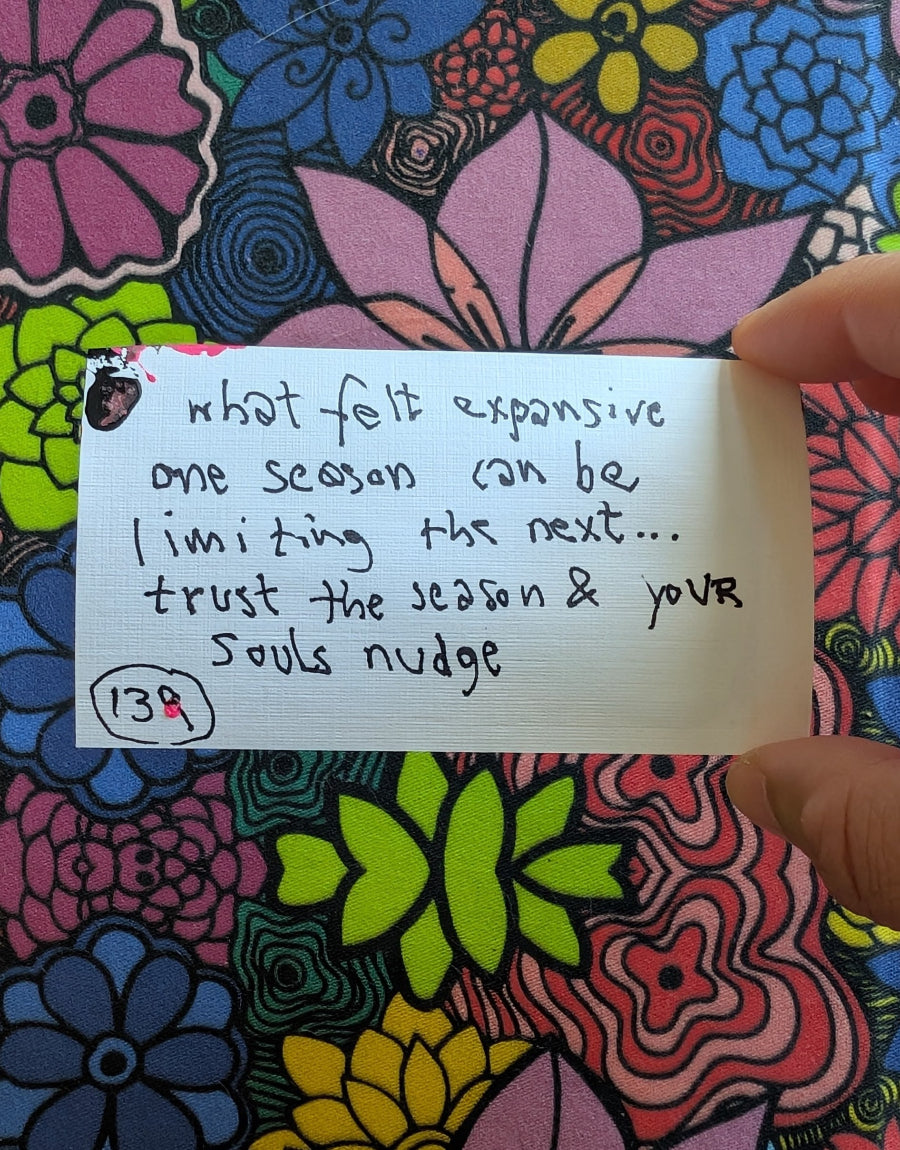 what felt expansive
one season can be
limiting the next...
trust the season & youR
souls nudge
139